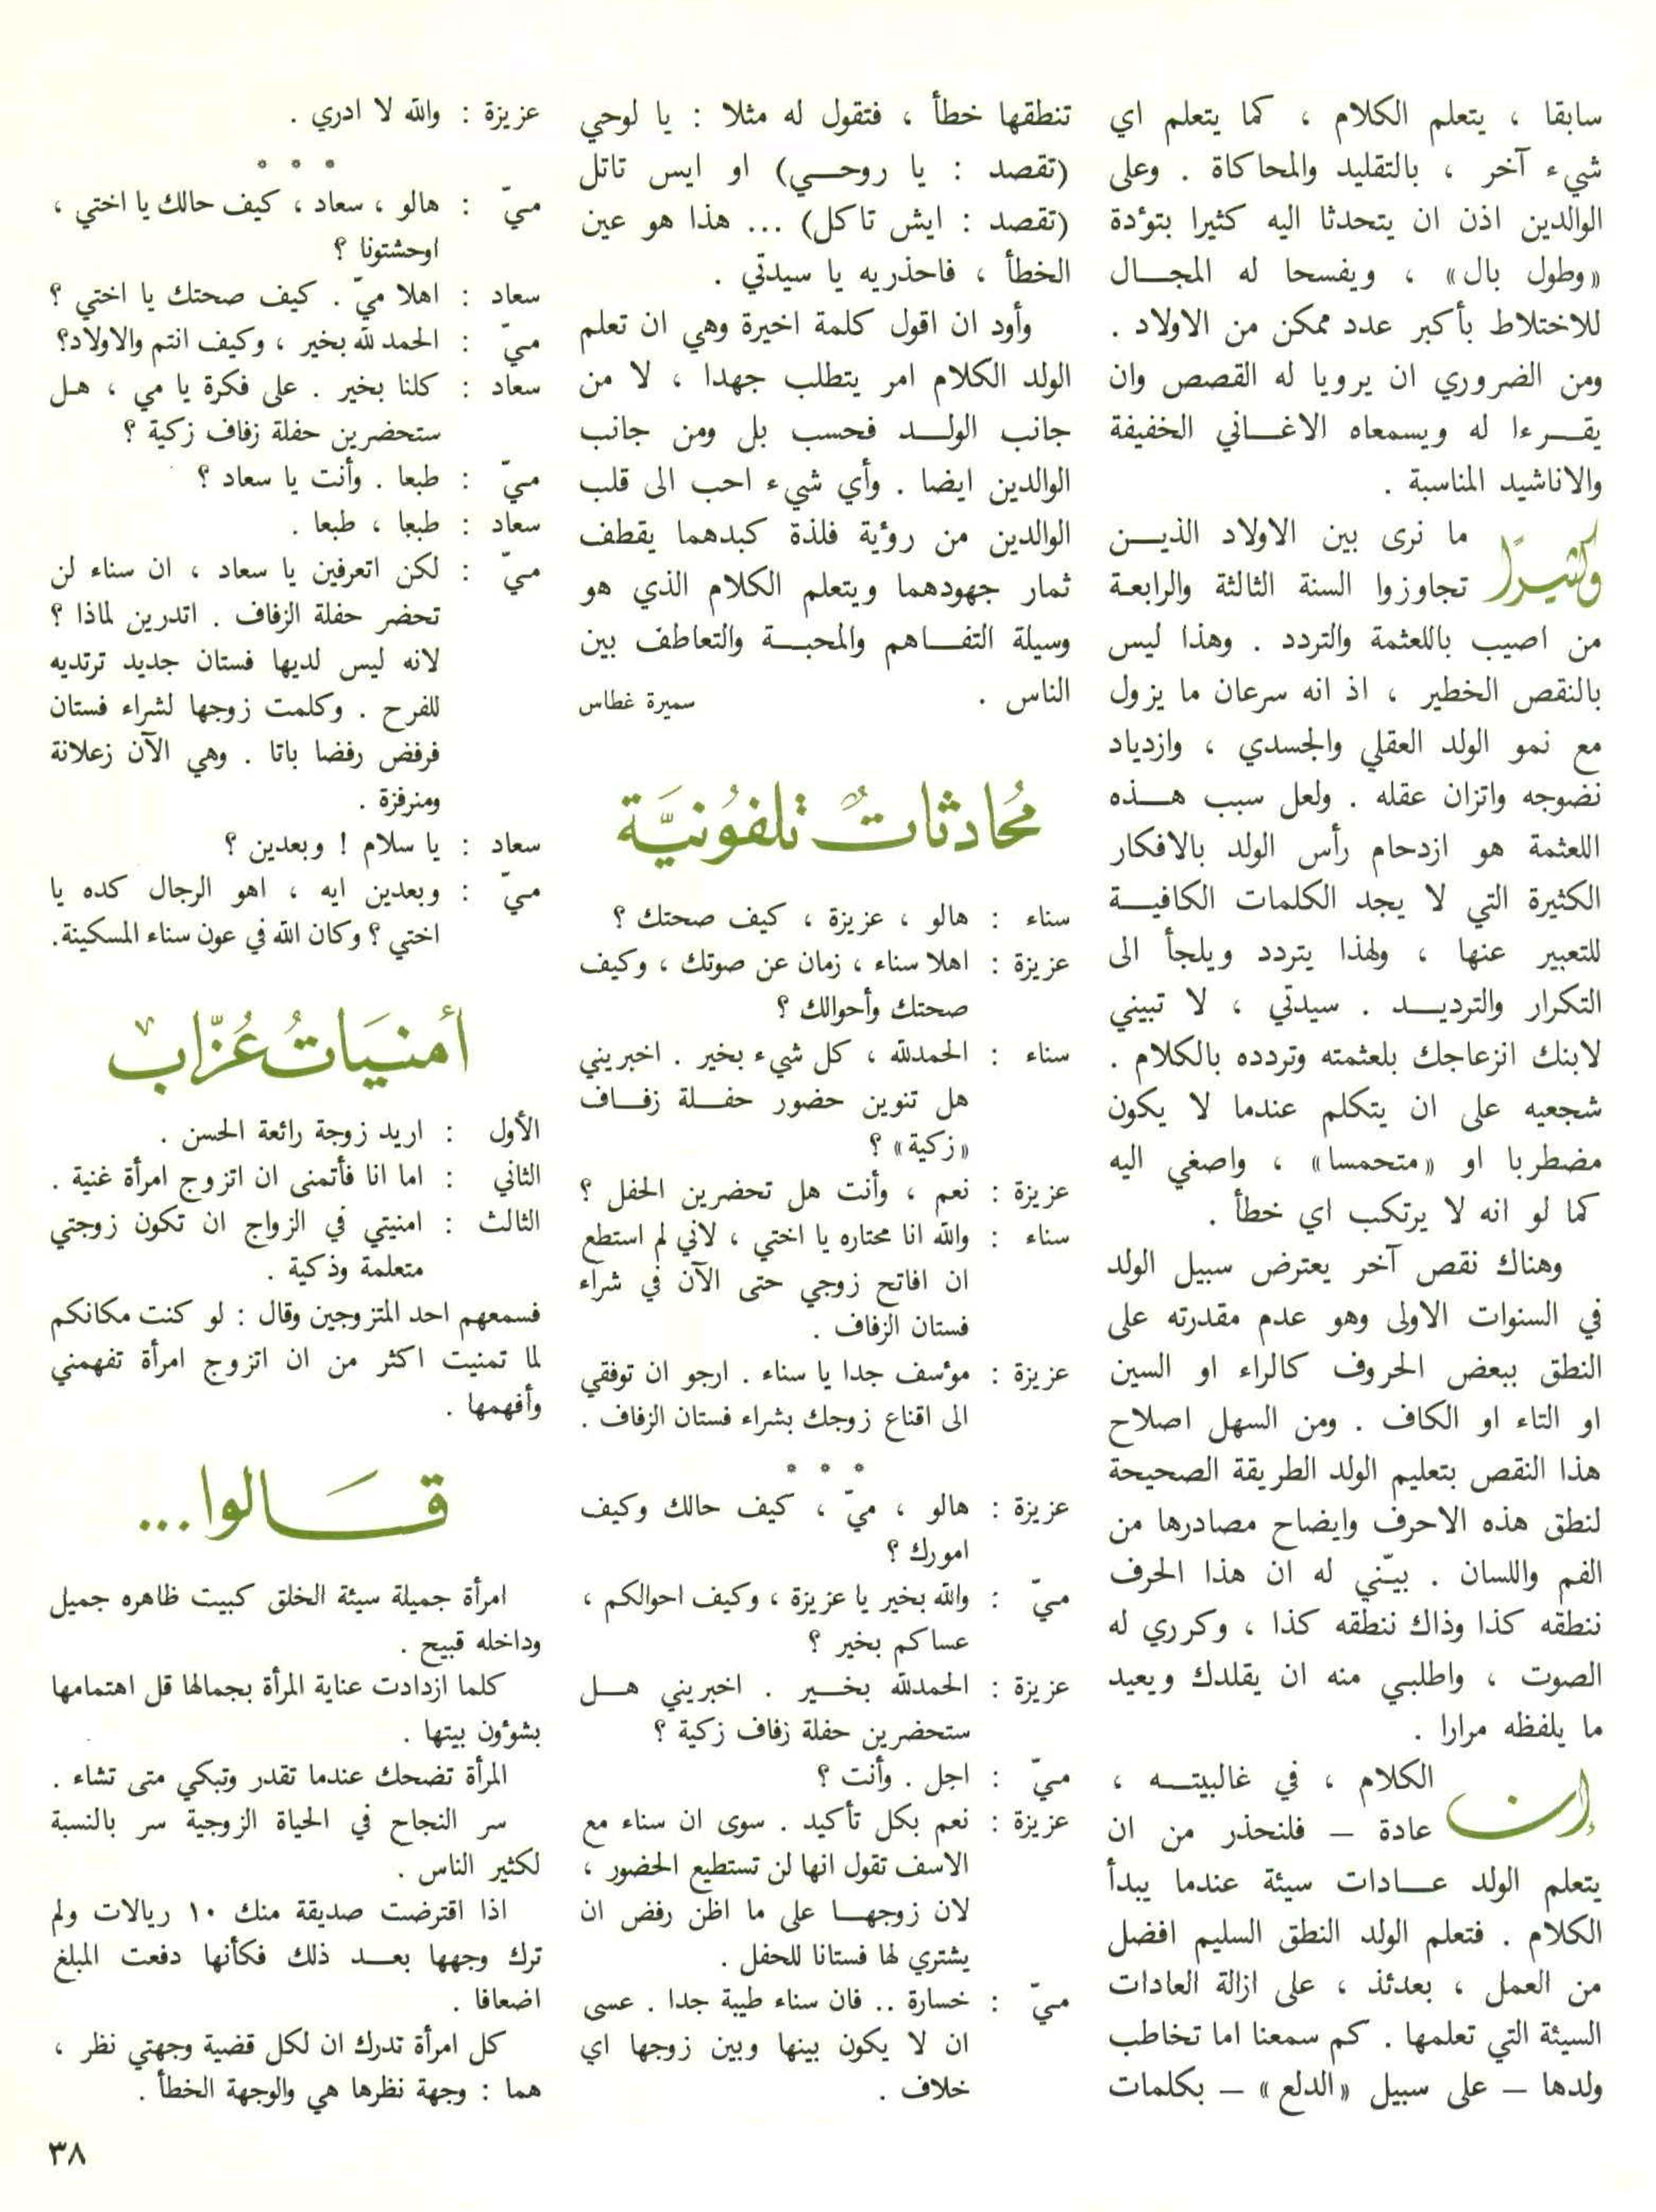 سابقا ، يتعلم الكلام ، كما يتعلم اي
شيء آخر ، بالتقليد والمحاكاة . وعلى
الوالدين اذن ان يتحدثا اليه كثيرا بتؤدة
«وطول بال» ، ويفسحا له المجـــال
للاختلاط بأكبر عدد ممكن من الاولاد .
ومن الضروري ان يرويا له القصص وان
يقـــرءا له ويسمعاه الاغـــاني الخفيفة
والاناشيد المناسبة .
وكثيرًا ما نرى بين الاولاد الذيـــن
تجاوزوا السنة الثالثة والرابعة
من اصيب باللعثمة والتردد . وهذا ليس
بالنقص الخطير ، اذ انه سرعان ما يزول
مع نمو الولد العقلي والجسدي ، وازدياد
نضوجه واتزان عقله . ولعل سبب هـــذه
اللعثمة هو ازدحام رأس الولد بالافكار
الكثيرة التي لا يجد الكلمات الكافيـــة
للتعبير عنها ، ولهذا يتردد ويلجأ الى
التكرار والترديـــد . سيدتي ، لا تبيني
لابنك انزعاجك بلعثمته وتردده بالكلام .
شجعيه على ان يتكلم عندما لا يكون
مضطربا او «متحمسا» ، واصغي اليه
كما لو انه لا يرتكب اي خطأ .
وهناك نقص آخر يعترض سبيل الولد
في السنوات الاولى وهو عدم مقدرته على
النطق ببعض الحروف كالراء او السين
او التاء او الكاف . ومن السهل اصلاح
هذا النقص بتعليم الولد الطريقة الصحيحة
لنطق هذه الاحرف وايضاح مصادرها من
الفم واللسان . بيّني له ان هذا الحرف
ننطقه كذا وذاك ننطقه كذا ، وكرري له
الصوت ، واطلبي منه ان يقلدك ويعيد
ما يلفظه مرارا .
إن الكلام ، في غالبيتـــه ،
عادة – فلنحذر من ان
يتعلم الولد عـــادات سيئة عندما يبدأ
الكلام . فتعلم الولد النطق السليم افضل
من العمل ، بعدئذ ، على ازالة العادات
السيئة التي تعلمها . كم سمعنا اما تخاطب
ولدها – على سبيل «الدلع» – بكلمات
تنطقها خطأ ، فتقول له مثلا : يا لوحي
(تقصد : يا روحـــي) او ايس تاتل
(تقصد : ايش تاكل) ... هذا هو عين
الخطأ ، فاحذريه يا سيدتي .
وأود ان اقول كلمة اخيرة وهي ان تعلم
الولد الكلام امر يتطلب جهدا ، لا من
جانب الولـــد فحسب بل ومن جانب
الوالدين ايضا . وأي شيء احب الى قلب
الوالدين من رؤية فلذة كبدهما يقطف
ثمار جهودهما ويتعلم الكلام الذي هو
وسيلة التفـــاهم والمحبـــة والتعاطف بين
الناس . سميرة غطاس
مُحَادثاتٌ تلفُونيَّة
سناء : هالو ، عزيزة ، كيف صحتك ؟
عزيزة : اهلا سناء ، زمان عن صوتك ، وكيف
صحتك وأحوالك ؟
سناء : الحمدلله ، كل شيء بخير . اخبريني
هل تنوين حضور حفـــلة زفـــاف
«زكية» ؟
عزيزة : نعم ، وأنت هل تحضرين الحفل ؟
سناء : والله انا محتاره يا اختي ، لاني لم استطع
ان افاتح زوجي حتى الآن في شراء
فستان الزفاف .
عزيزة : مؤسف جدا يا سناء . ارجو ان توفقي
الى اقناع زوجك بشراء فستان الزفاف .
* * *
عزيزة : هالو ، ميّ ، كيف حالك وكيف
امورك ؟
ميّ : والله بخير يا عزيزة ، وكيف احوالكم ،
عساكم بخير ؟
عزيزة : الحمدلله بخـــير . اخبريني هـــل
ستحضرين حفلة زفاف زكية ؟
ميّ : اجل . وأنت ؟
عزيزة : نعم بكل تأكيد . سوى ان سناء مع
الاسف تقول انها لن تستطيع الحضور ،
لان زوجهـــا على ما اظن رفض ان
يشتري لها فستانا للحفل .
ميّ : خسارة .. فان سناء طيبة جدا . عسى
ان لا يكون بينها وبين زوجها اي
خلاف .
عزيزة : والله لا ادري .
* * *
ميّ : هالو ، سعاد ، كيف حالك يا اختي ،
اوحشتونا ؟
سعاد : اهلا ميّ . كيف صحتك يا اختي ؟
ميّ : الحمد لله بخير ، وكيف انتم والاولاد؟
سعاد : كلنا بخير . على فكرة يا مي ، هـل
ستحضرين حفلة زفاف زكية ؟
ميّ : طبعا . وأنت يا سعاد ؟
سعاد : طبعا ، طبعا .
ميّ : لكن اتعرفين يا سعاد ، ان سناء لن
تحضر حفلة الزفاف . اتدرين لماذا ؟
لانه ليس لديها فستان جديد ترتديه
للفرح . وكلمت زوجها لشراء فستان
فرفض رفضا باتا . وهي الآن زعلانة
ومنرفزة .
سعاد : يا سلام ! وبعدين ؟
ميّ : وبعدين ايه ، اهو الرجال كده يا
اختي ؟ وكان الله في عون سناء المسكينة.
أمنيَاتُ عُزّاب
الأول : اريد زوجة رائعة الحسن .
الثاني : اما انا فأتمنى ان اتزوج امرأة غنية .
الثالث : امنيتي في الزواج ان تكون زوجتي
متعلمة وذكية .
فسمعهم احد المتزوجين وقال : لو كنت مكانكم
لما تمنيت اكثر من ان اتزوج امرأة تفهمني
وأفهمها .
قَـــالوا...
امرأة جميلة سيئة الخلق كبيت ظاهره جميل
وداخله قبيح .
كلما ازدادت عناية المرأة بجمالها قل اهتمامها
بشؤون بيتها .
المرأة تضحك عندما تقدر وتبكي متى تشاء .
سر النجاح في الحياة الزوجية سر بالنسبة
لكثير الناس .
اذا اقترضت صديقة منك ١٠ ريالات ولم
ترك وجهها بعـــد ذلك فكأنها دفعت المبلغ
اضعافا .
كل امرأة تدرك ان لكل قضية وجهتي نظر ،
هما : وجهة نظرها هي والوجهة الخطأ .
٣٨